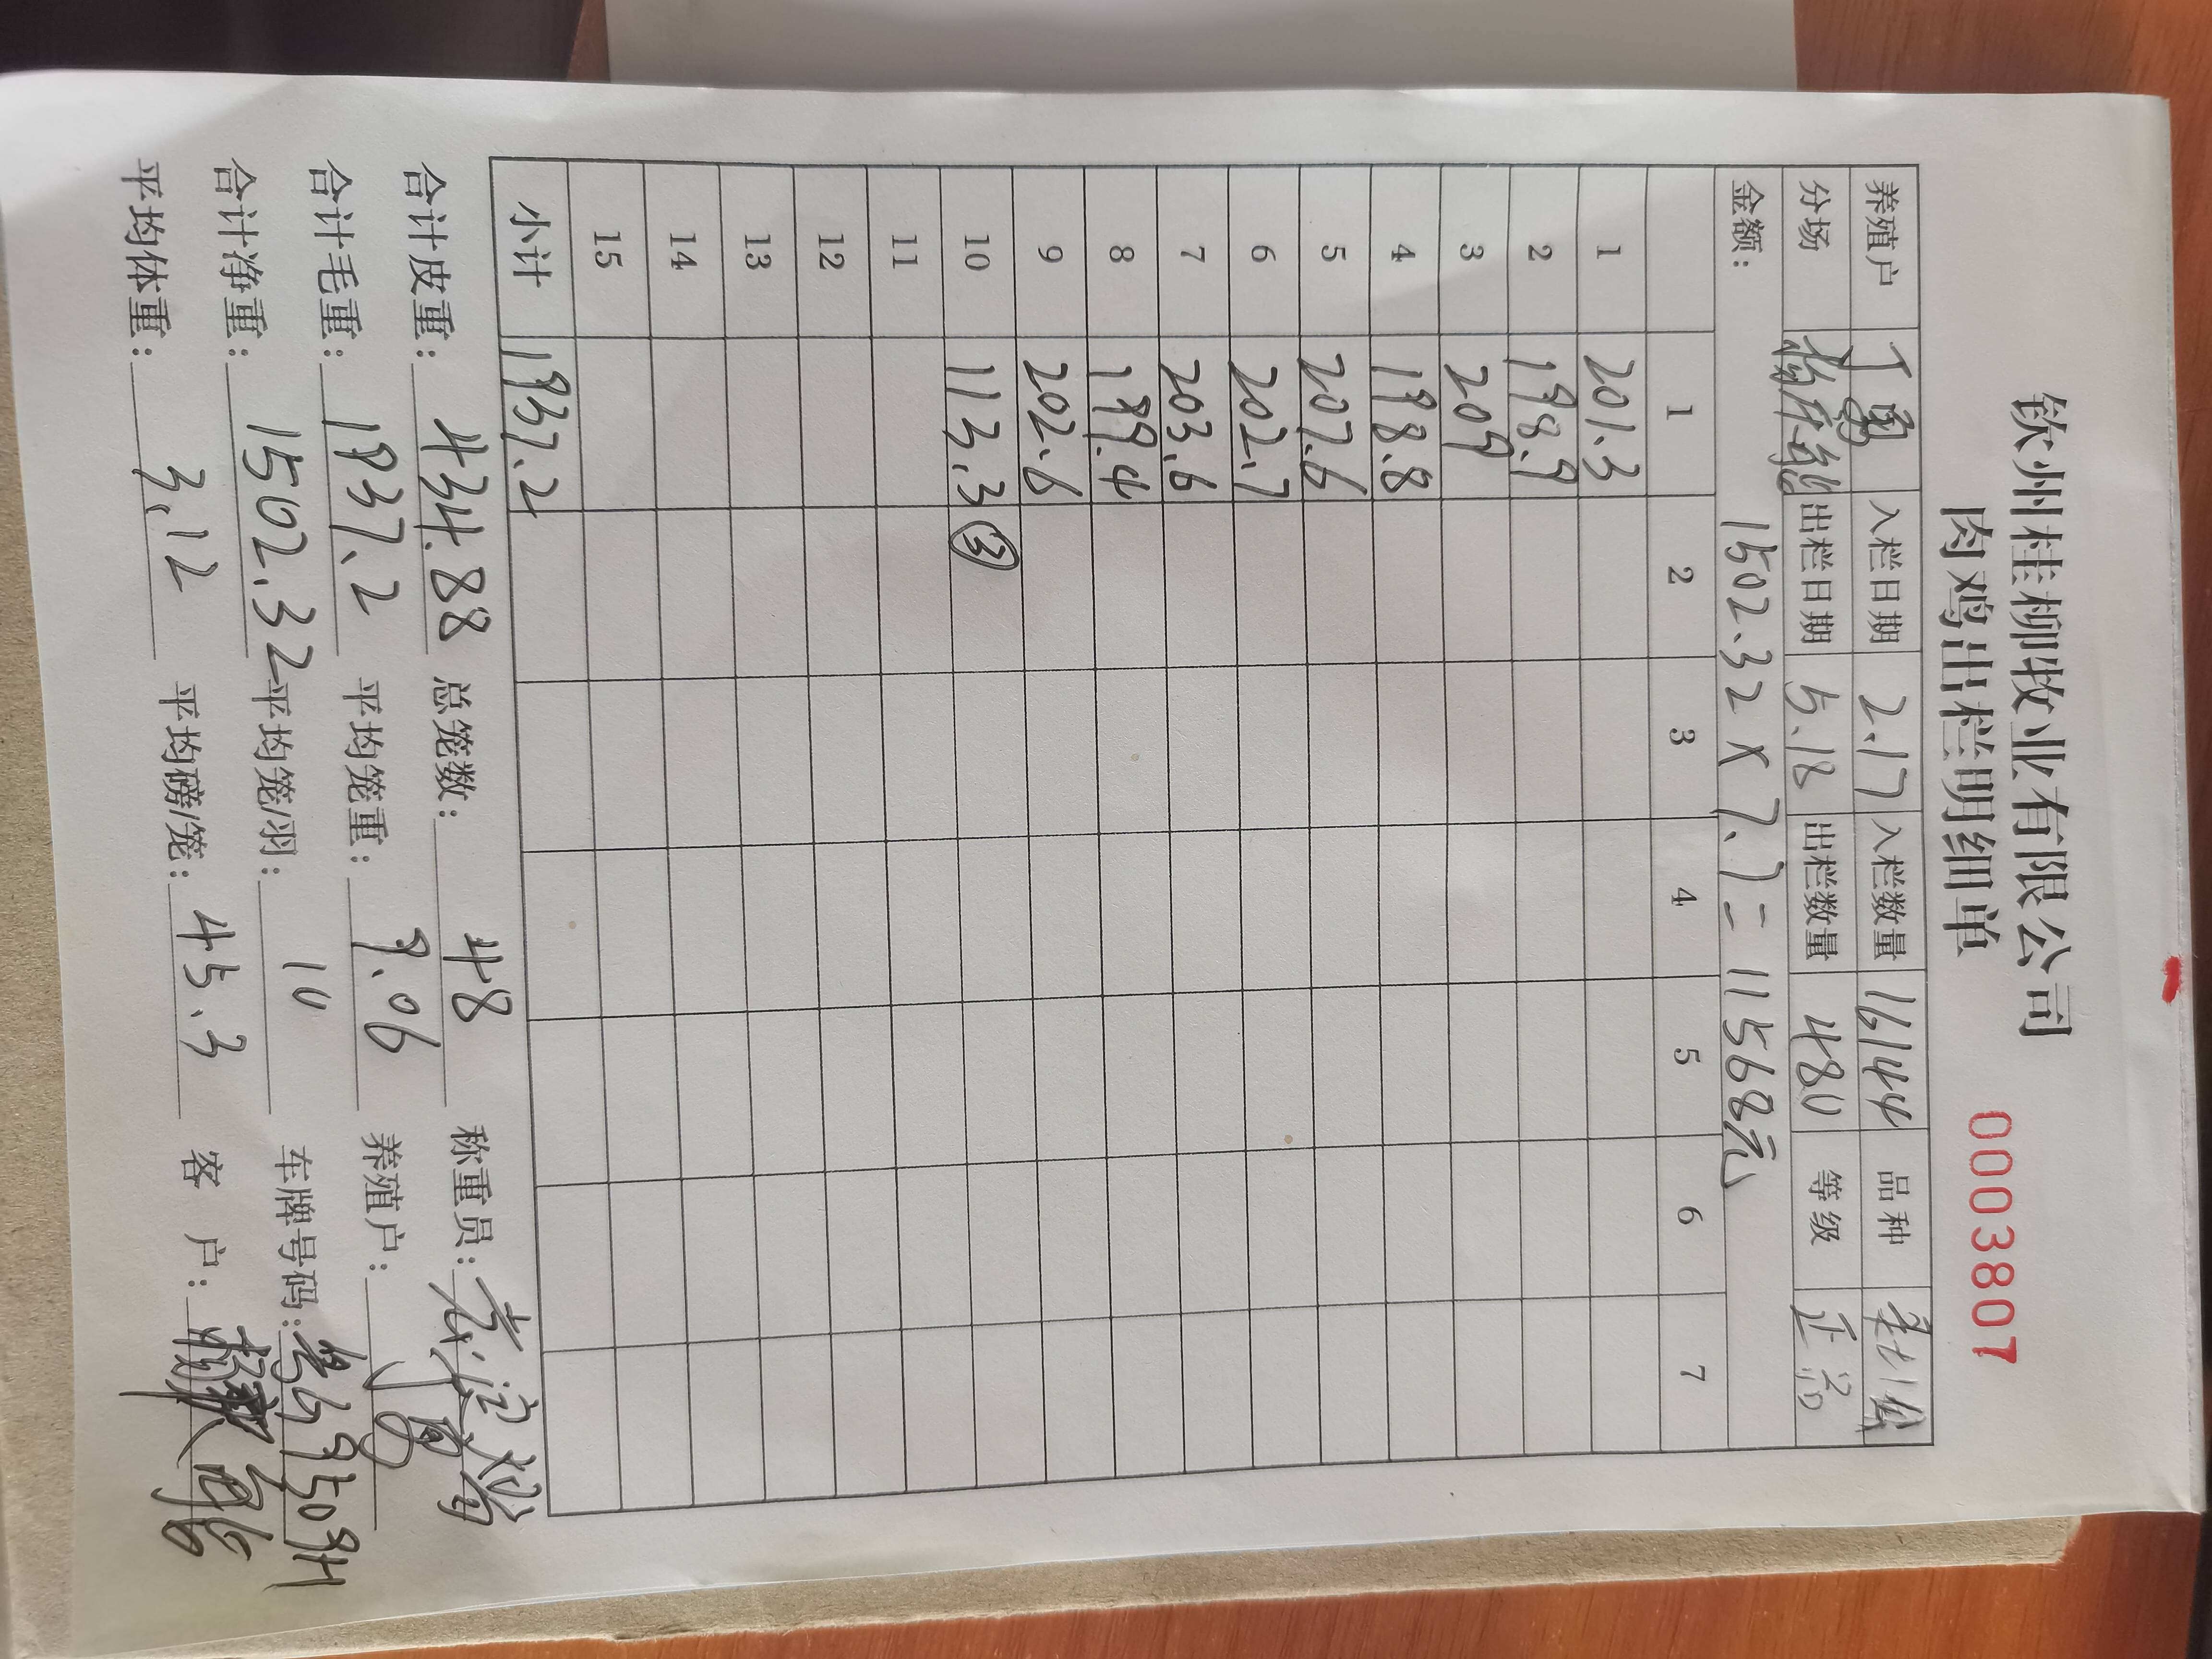 钦州桂柳牧业有限公司
肉鸡出栏明细单
0003807
养殖户 丁勇 入栏日期 2.17 入栏数量 16144 品种
分场 出栏日期 5.18 出栏数量 480 等级 正品
金额: 1502.32 × 7.7 = 11568元
1 2 3 4 5 6 7
1 201.3
2 198.9
3 209
4 198.8
5 207.6
6 202.7
7 203.6
8 199.4
9 202.6
10 113.3 ③
11
12
13
14
15
小计 1937.2
合计皮重: 434.88 总笼数: 48 称重员:
合计毛重: 1937.2 平均笼重: 9.06 养殖户: 丁勇
合计净重: 1502.32 平均笼/羽: 10 车牌号码:
平均体重: 3.12 平均磅/笼: 45.3 客 户: